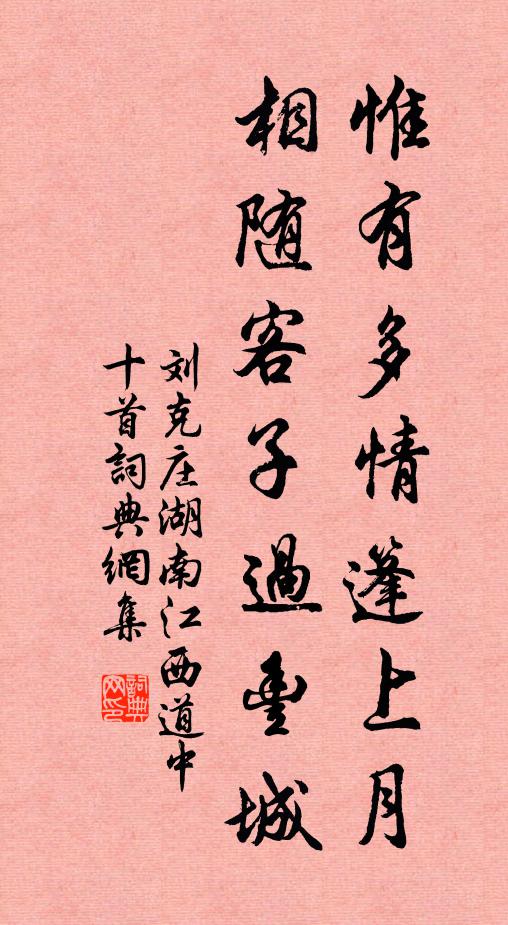 惟有多情篷上月
相随客子過豊城
刘克庄湖南江西道中
十首詞典網集
詞典
网印